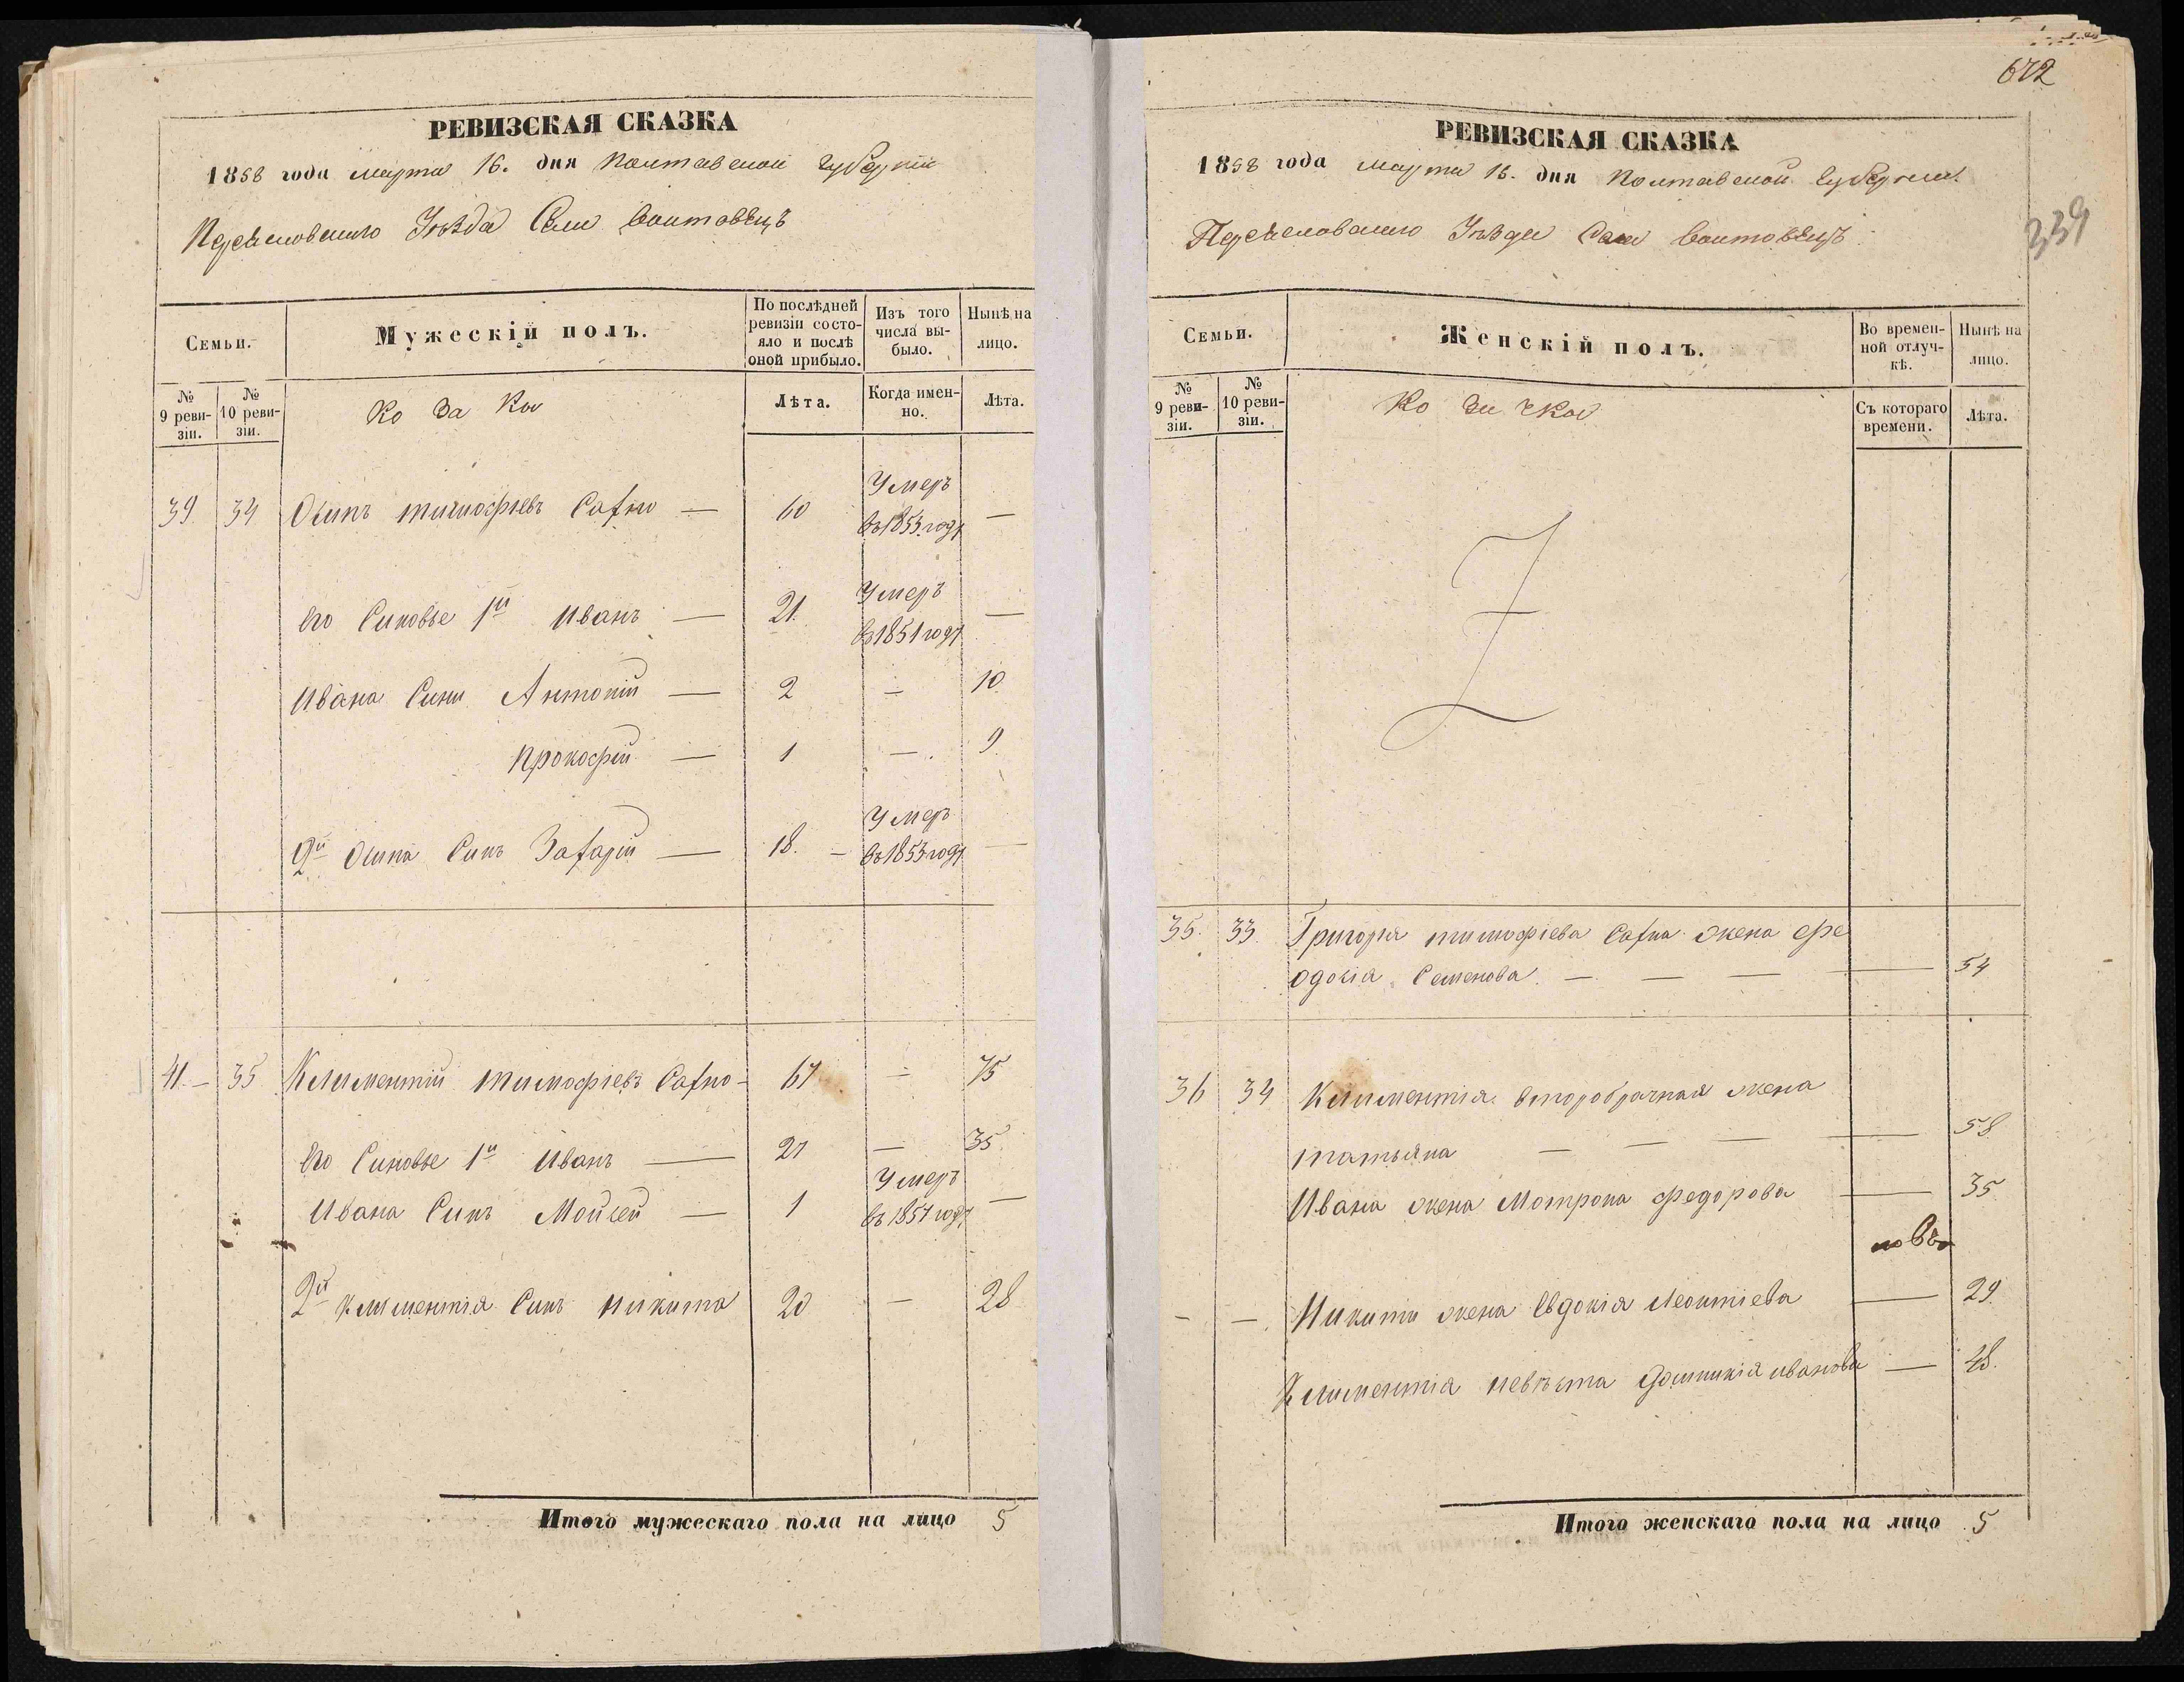 672
339
РЕВИЗСКАЯ СКАЗКА
1858 года марта 16. дня Полтавской губерніи
Переясловского Уѣзда Села Воитовецъ
Семьи.
Мужескій полъ.
По послѣдней ревизіи состояло и послѣ оной прибыло.
Изъ того числа выбыло.
Нынѣ на лицо.
№ 9 ревизіи.
№ 10 ревизіи.
Козаки
Лѣта.
Когда именно.
Лѣта.
39 34 Осипъ Тимофіевъ Сахно — 60 Умеръ въ 1853 году —
его Синовье 1й Иванъ — 21. Умеръ въ 1851 году —
Ивана Сини Антоній — 2 — 10
Прокофій — 1 — 9
2й Осипа Синъ Захарій — 18. — Умеръ въ 1853 году —
41. — 35 Климентій Тимофіевъ Сахно — 67 — 75
его Синовье 1й Иванъ — 27 — 35
Ивана Синъ Мойсей — 1 Умеръ въ 1857 году —
2й Климентія Синъ Никита 20 — 28
Итого мужескаго пола на лицо 5
РЕВИЗСКАЯ СКАЗКА
1858 года марта 16. дня Полтавской Губерніи.
Переясловского Уѣзда Села Воитовецъ
Семьи.
Женскій полъ.
Во временной отлучкѣ.
Нынѣ на лицо.
№ 9 ревизіи.
№ 10 ревизіи.
Козачки
Съ котораго времени.
Лѣта.
35. 33. Григорія Тимофіева Сахна жена Фе
одосія Семенова. — — — — 54
36 34 Климентія второбрачная жена
Татьяна — — — — 58
Ивана жена Мотрона Федорова — 35
— — Никити жена Евдокія Леонтіева — 29.
Климентія невѣста Домникія Иванова — 48.
Итого женскаго пола на лицо 5